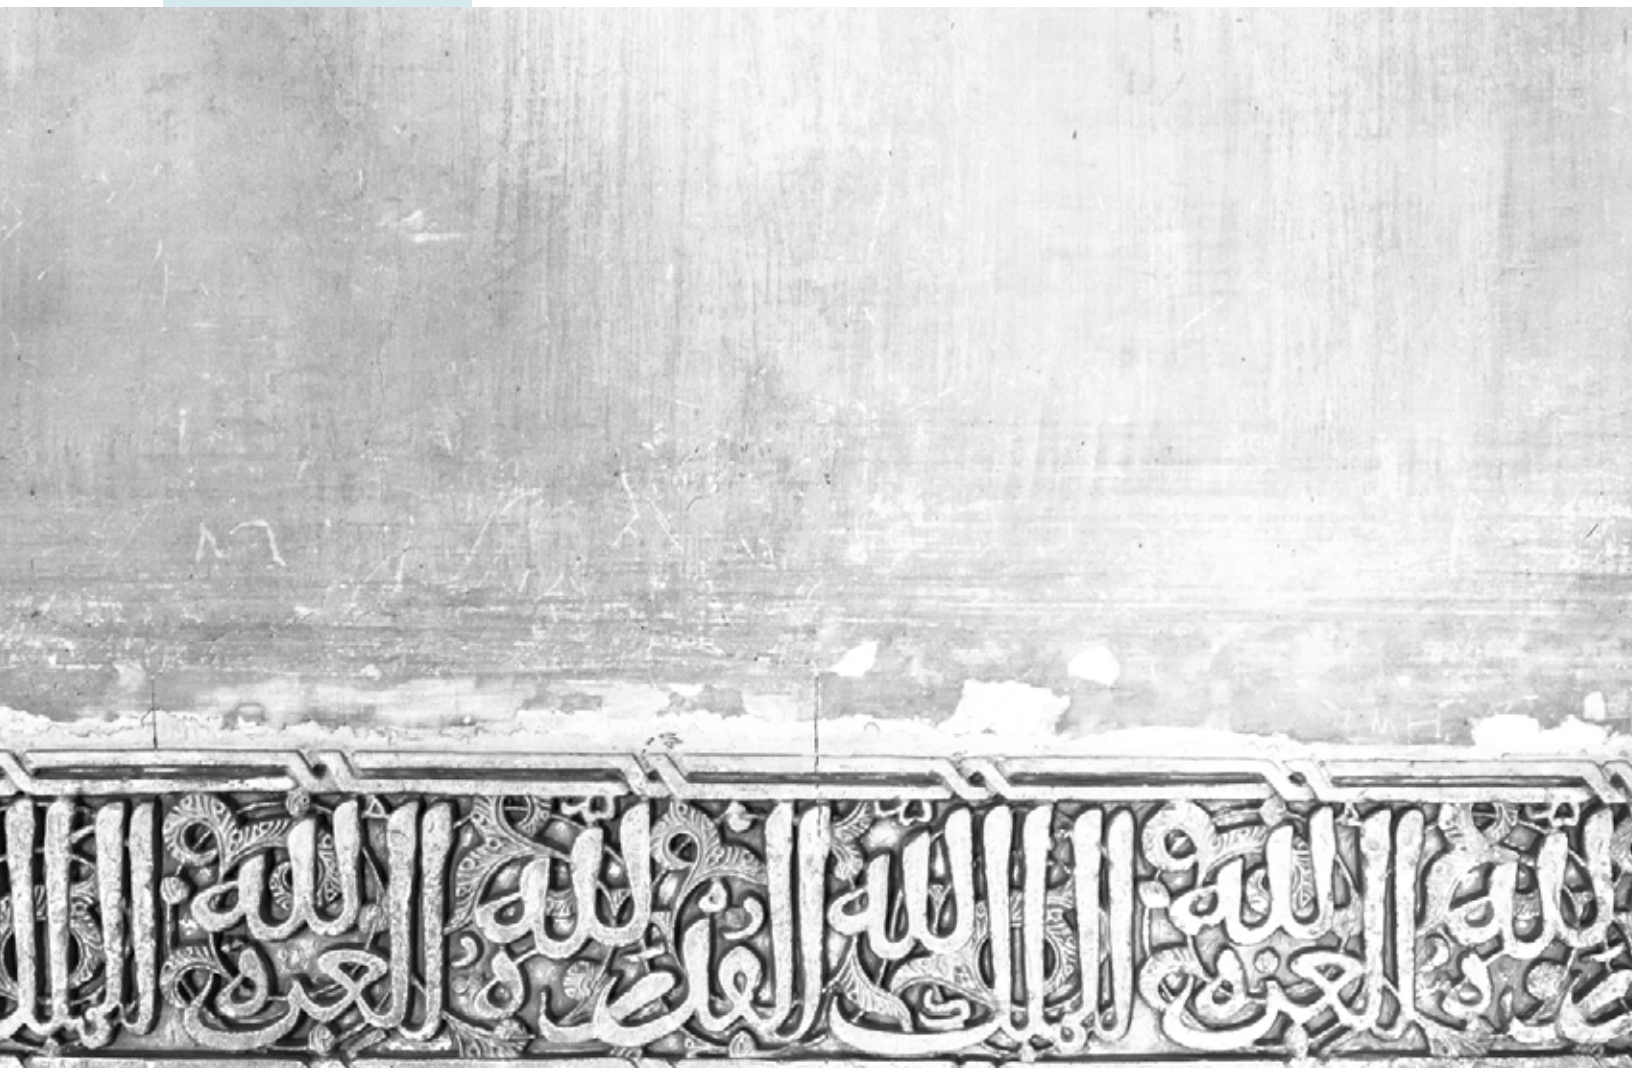 لله العزة لله الملك لله القدرة لله العزة لله